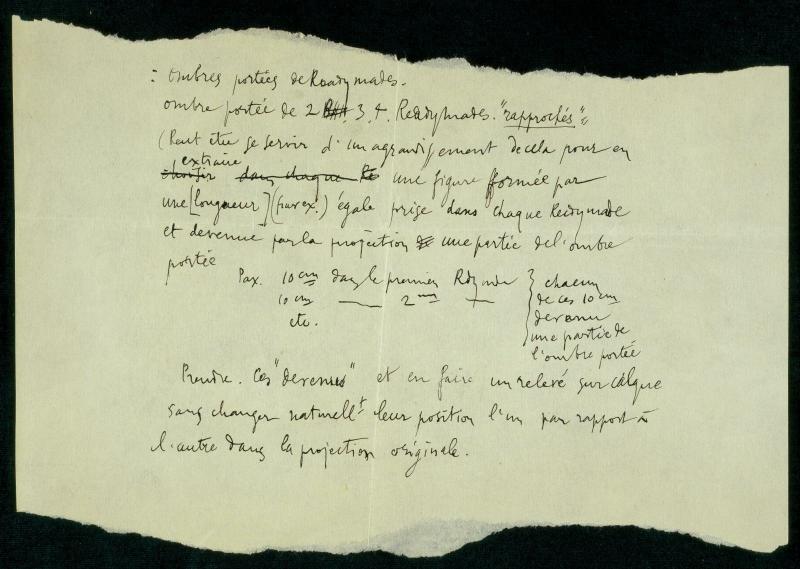 : Ombres portées de Readymades.
ombre portée de 2. 3. 4. Readymades. "rapprochés"=
(Peut être se servir d'un agrandissement de cela pour en
extraire
choisir dans chaque Re une figure formée par
une [longueur] (par ex.) égale prise dans chaque Readymade
et devenue par la projection une partie de l'ombre
portée
Par. 10 cm dans le premier Rdymde } chacun
10 cms — 2me — de ces 10 cm
etc. devenu
une partie de
l'ombre portée
Prendre. Ces "devenus" et en faire un relevé sur calque
sans changer naturellt leur position l'un par rapport à
l'autre dans la projection originale.